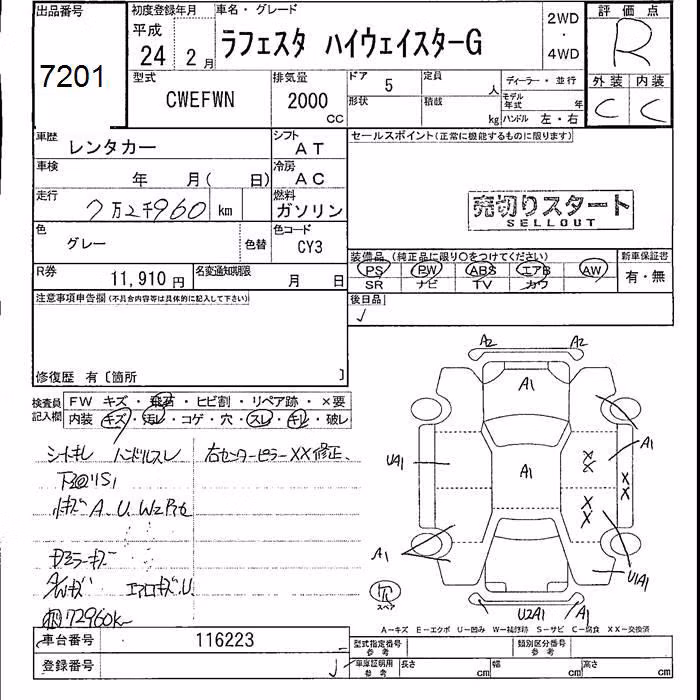 出品番号
7201
初度登録年月
平成
24 2 月
車名・グレード
ラフェスタ ハイウェイスターG
2WD
・
4WD
評価点
R
型式
CWEFWN
排気量
2000
CC
ドア 5
定員 人
形状
積載 kg
ディーラー・並行
モデル年式 年
ハンドル 左・右
外装 内装
C C
車歴
レンタカー
シフト
AT
セールスポイント(正常に機能するものに限ります)
車検
年 月( 日)
冷房
AC
走行
7万2千960 km
燃料
ガソリン
売切りスタート
SELLOUT
色
グレー
色替
色コード
CY3
装備品 (純正品に限り○をつけてください)
PS PW ABS エアB AW
SR ナビ TV カワ
新車保証書
有・無
R券
11,910 円
名変通知期限
月 日
後日品
注意事項申告欄(不具合内容等は具体的に記入して下さい)
修復歴 有〔箇所 〕
検査員
記入欄
FW キズ・飛石・ヒビ割・リペア跡・×要
内装 キズ・汚レ・コゲ・穴・スレ・キレ・破レ
シートキレ ハンドルスレ
右センターピラーXX修正、
A. U. W2
エアロキズ.U
72960k
A2 A2
A1
UA1
A1
A1
XX
XX
XX
A1
U1A1
U2A1
A1
スペア
A-キズ E-エクボ U-凹み W-補修跡 S-サビ C-腐食 XX-交換済
車台番号
116223
登録番号
型式指定番号
参考
類別区分番号
参考
車庫証明用
参考
長さ cm
幅 cm
高さ cm